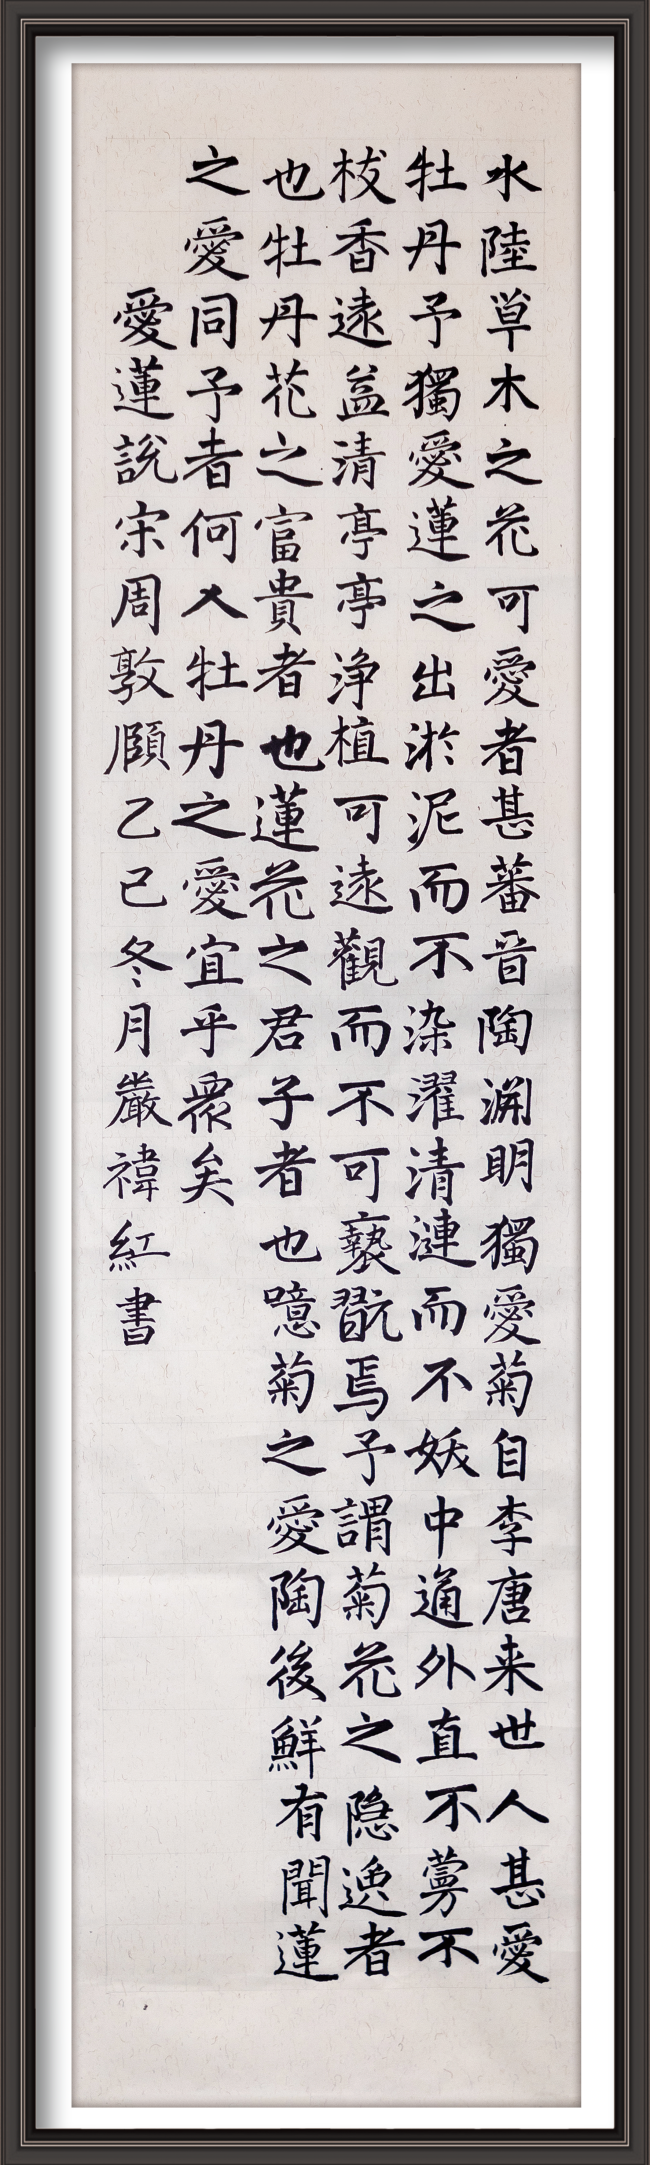 水陸草木之花可愛者甚蕃晉陶淵明獨愛菊自李唐来世人甚愛
牡丹予獨愛蓮之出淤泥而不染濯清漣而不妖中通外直不蔓不
枝香遠益清亭亭浄植可遠觀而不可褻翫焉予謂菊花之隐逸者
也牡丹花之富貴者也蓮花之君子者也噫菊之愛陶後鮮有聞蓮
之愛同予者何人牡丹之愛宜乎衆矣
愛蓮說宋周敦頤乙巳冬月嚴禕紅書